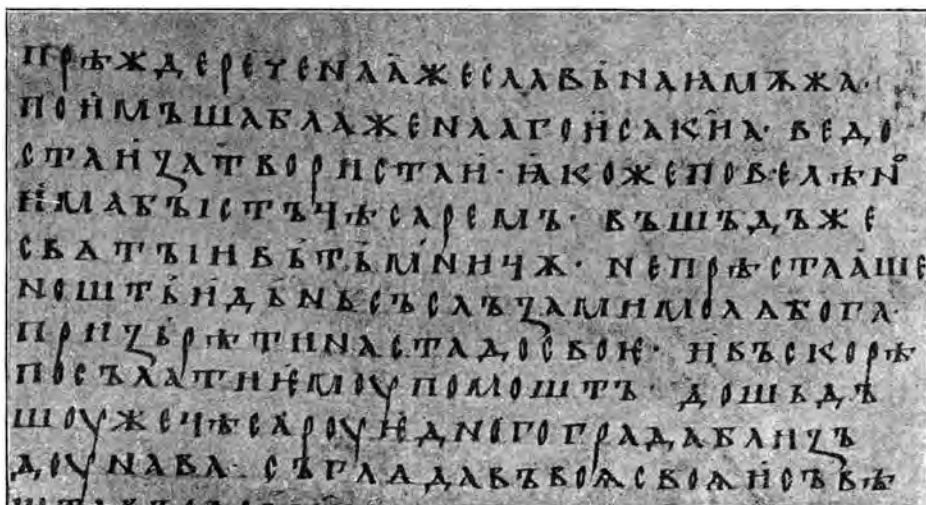 прѣждереченаꙗжеславьнаꙗмѫжа·
поимъшаблаженаагоисакиꙗ· ведо
стаизатвористаи· ꙗкожеповелѣно
имабꙑстъцѣсаремъ· въшъдъже
свѧтꙑивьтьмьницѫ· непрѣстаꙗше
ноштьидьньсъслъзамимолѧбога·
призьрѣтинастадосвоѥ· ивъскорѣ
посълатиѥмоупомошть· дошьдъ
шоужецѣсароуѥдногоградаблизъ
доунава· съглѧдавъвоѩсвоѩисъвѣ